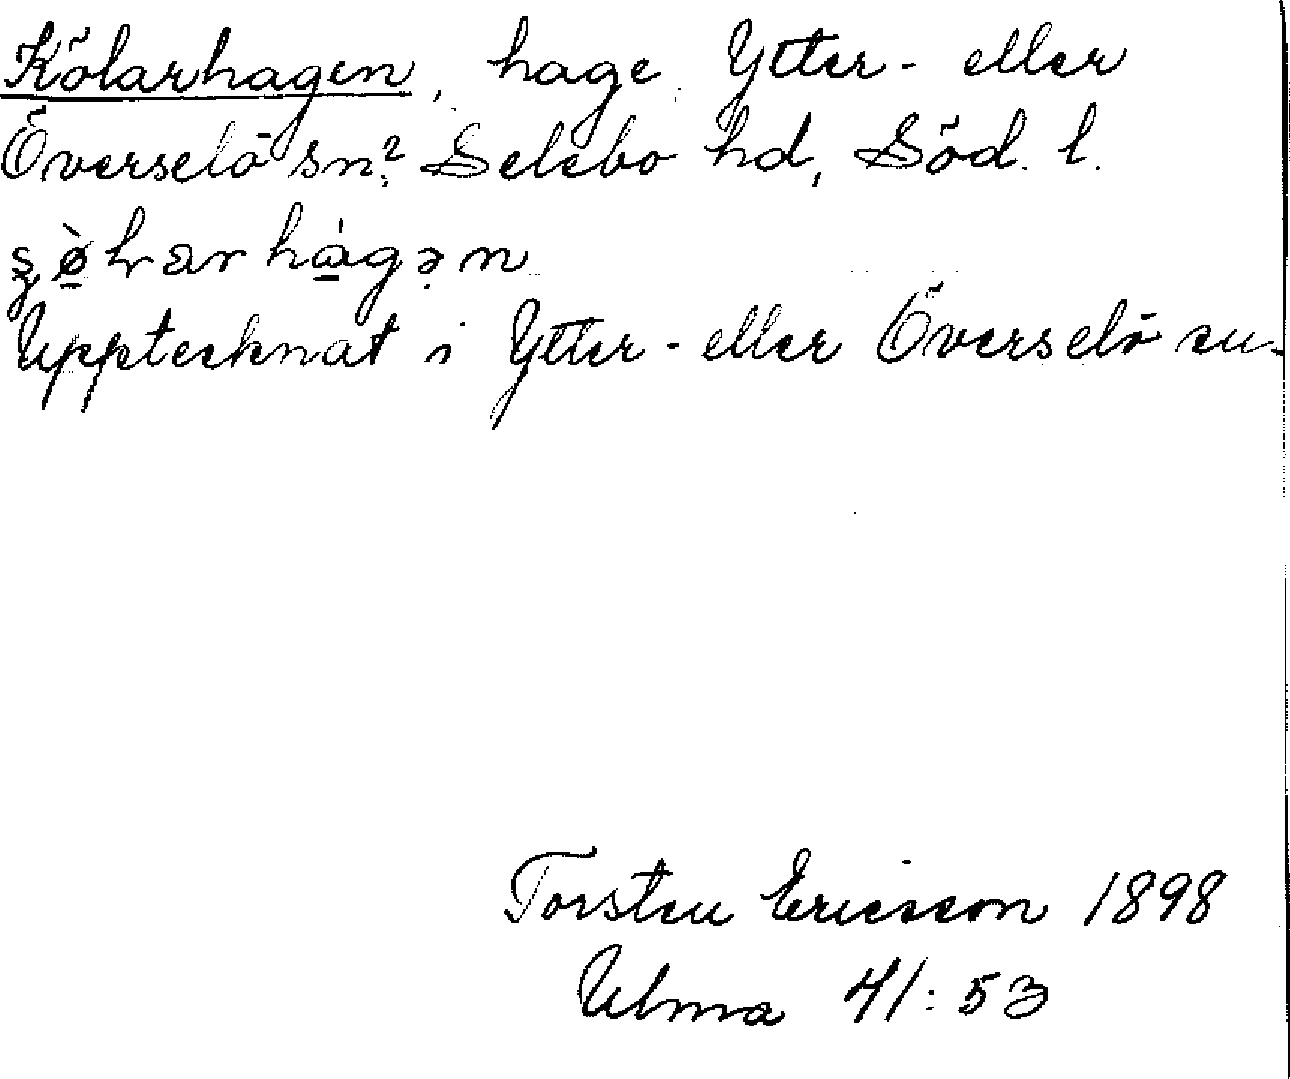 Kölarhagen, hage Ytter- eller
Överselö sn? Selebo hd, Söd. l.
Upptecknat i Ytter- eller Överselö sn.
Torsten Ericsson 1898
Ulma 41:53